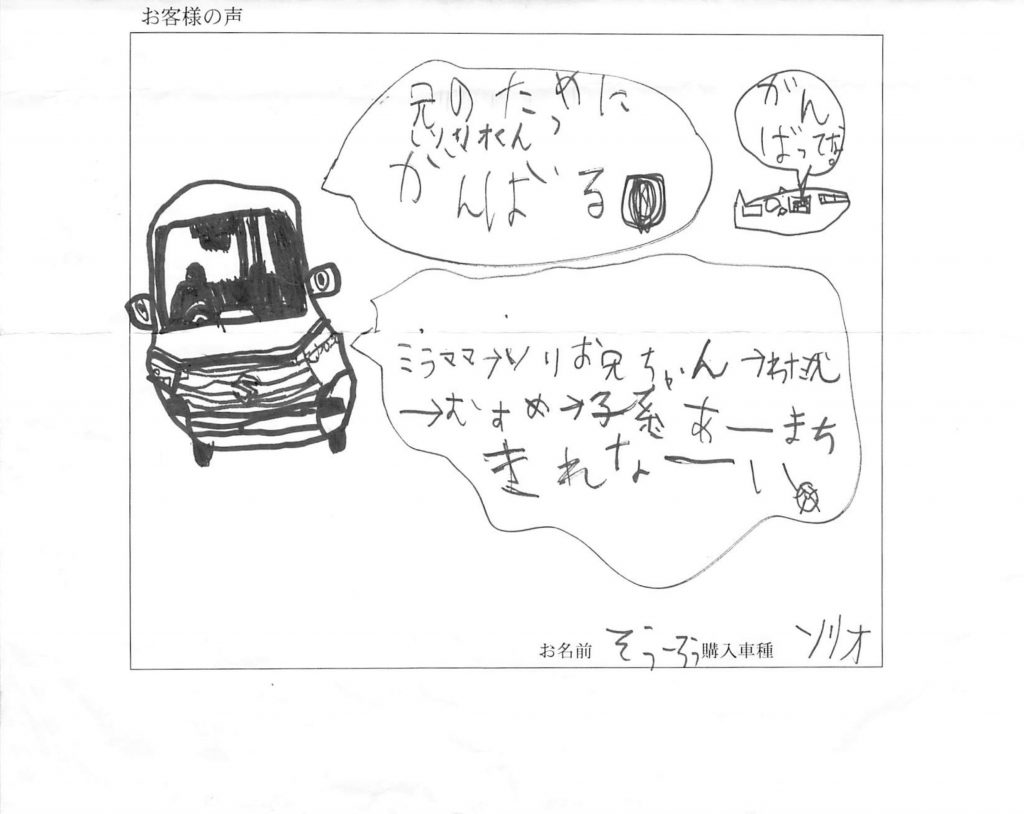 お客様の声
兄のために
がんばる
がん
ばってな。
ミラママ→ソリお兄ちゃん→わたし
→むすめ→子孫 あーまち
きれなーい
お名前 そうーろう 購入車種 ソリオ